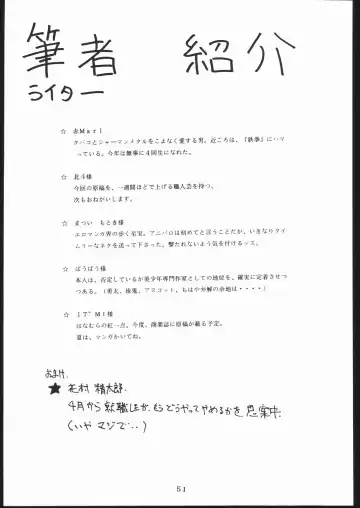 筆者 紹介
ライター
☆ 赤Marl
タバコとジャーマンメタルをこよなく愛する男。近ごろは、『鉄拳』にハマ
っている。今年は無事に4回生になれた。
☆ 北4様
今回の原稿を、一週間ほどで上げる職人芸を持つ。
次もおねがいします。
☆ まつい もとき様
エロマンガ界の歩く至宝。アニパロは初めてと言うことだが、いきなりタイ
ムリーなネタを送って下さった。撃たれないよう気を付けるッス。
☆ ぼうぼう様
本人は、否定しているが美少年専門作家としての地位を、確実に定着させつ
つある。(勇太、後鬼、アスコット、もはや分解の余地は・・・・)
☆ 17°Mt様
はなむらの紅一点。今度、商業誌に原稿が載る予定。
夏は、マンガかいてね。
おまけ.
★ 花村 精太郎.
4月から就職しますが、もうどうやってやめるかを思案中
(いや マジで・・)
51